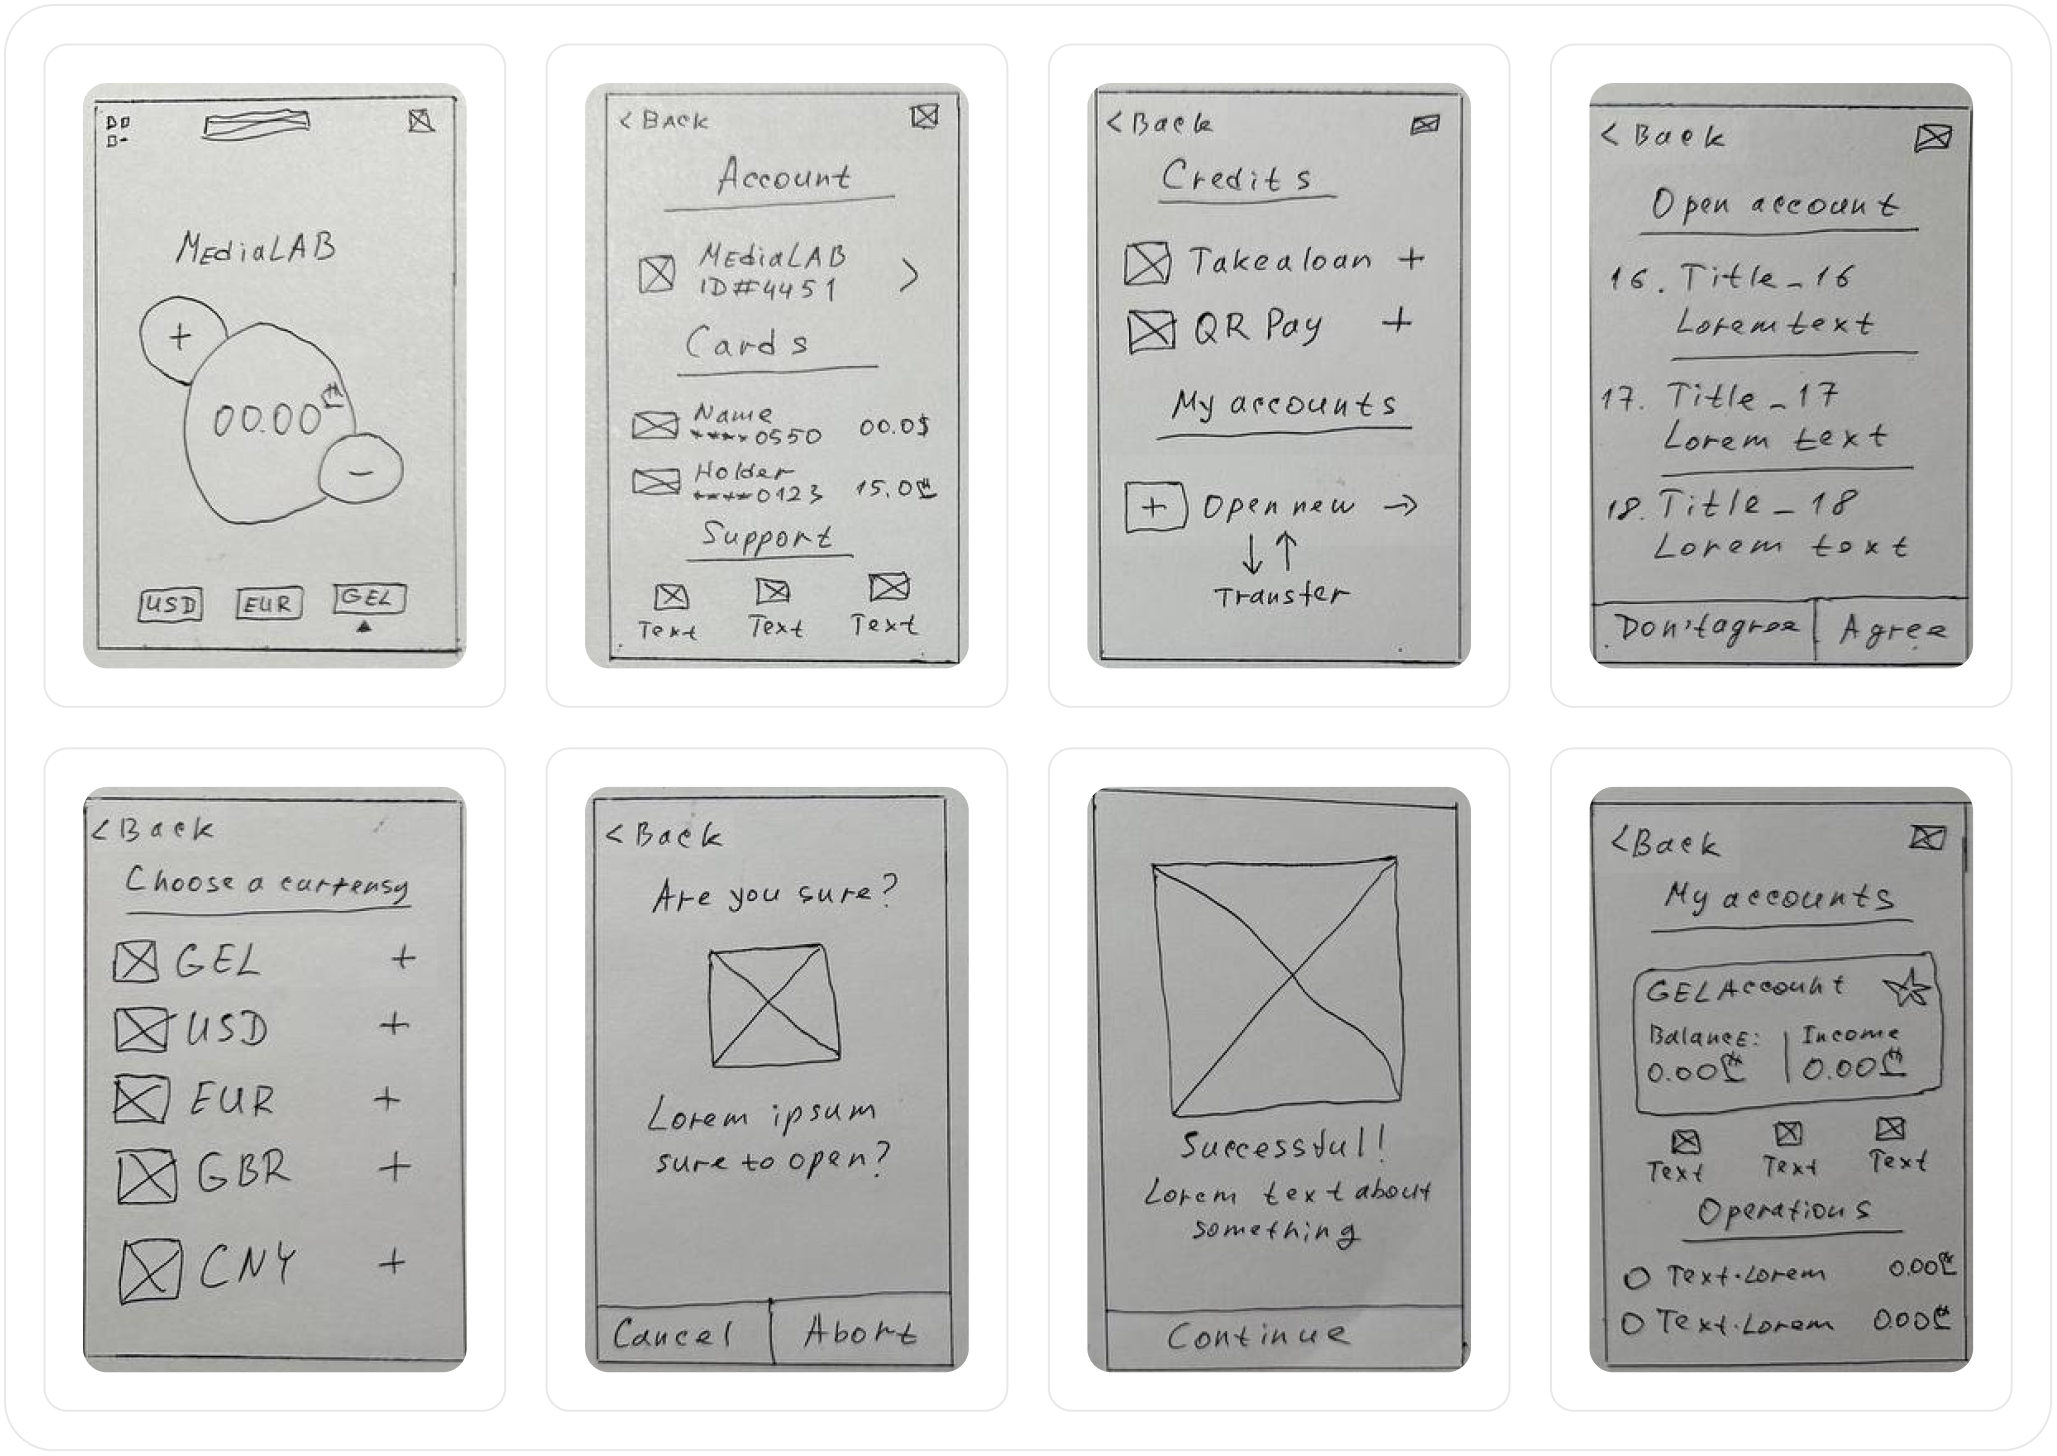 MEdiaLAB
+
00.00₾
−
USD EUR GEL
< BACK
Account
MEdiaLAB
ID#4451
>
Cards
Name
****0550
00.0$
Holder
****0123
15.0₾
Support
Text Text Text
< Back
Credits
Take a loan +
QR Pay +
My accounts
+ Open new →
↓↑
Transfer
< Back
Open account
16. Title_16
Lorem text
17. Title_17
Lorem text
18. Title_18
Lorem text
Don't agree Agree
< Back
Choose a currensy
GEL +
USD +
EUR +
GBR +
CNY +
< Back
Are you sure?
Lorem ipsum
sure to open?
Cancel Abort
Successful!
Lorem text about
something
Continue
< Back
My accounts
GEL Account
Balance: Income
0.00₾ 0.00₾
Text Text Text
Operations
Text.Lorem 0.00₾
Text.Lorem 0.00₾